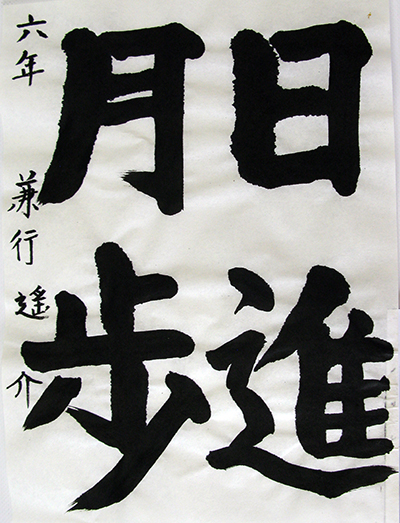 日進
月歩
六年 兼行 遥介